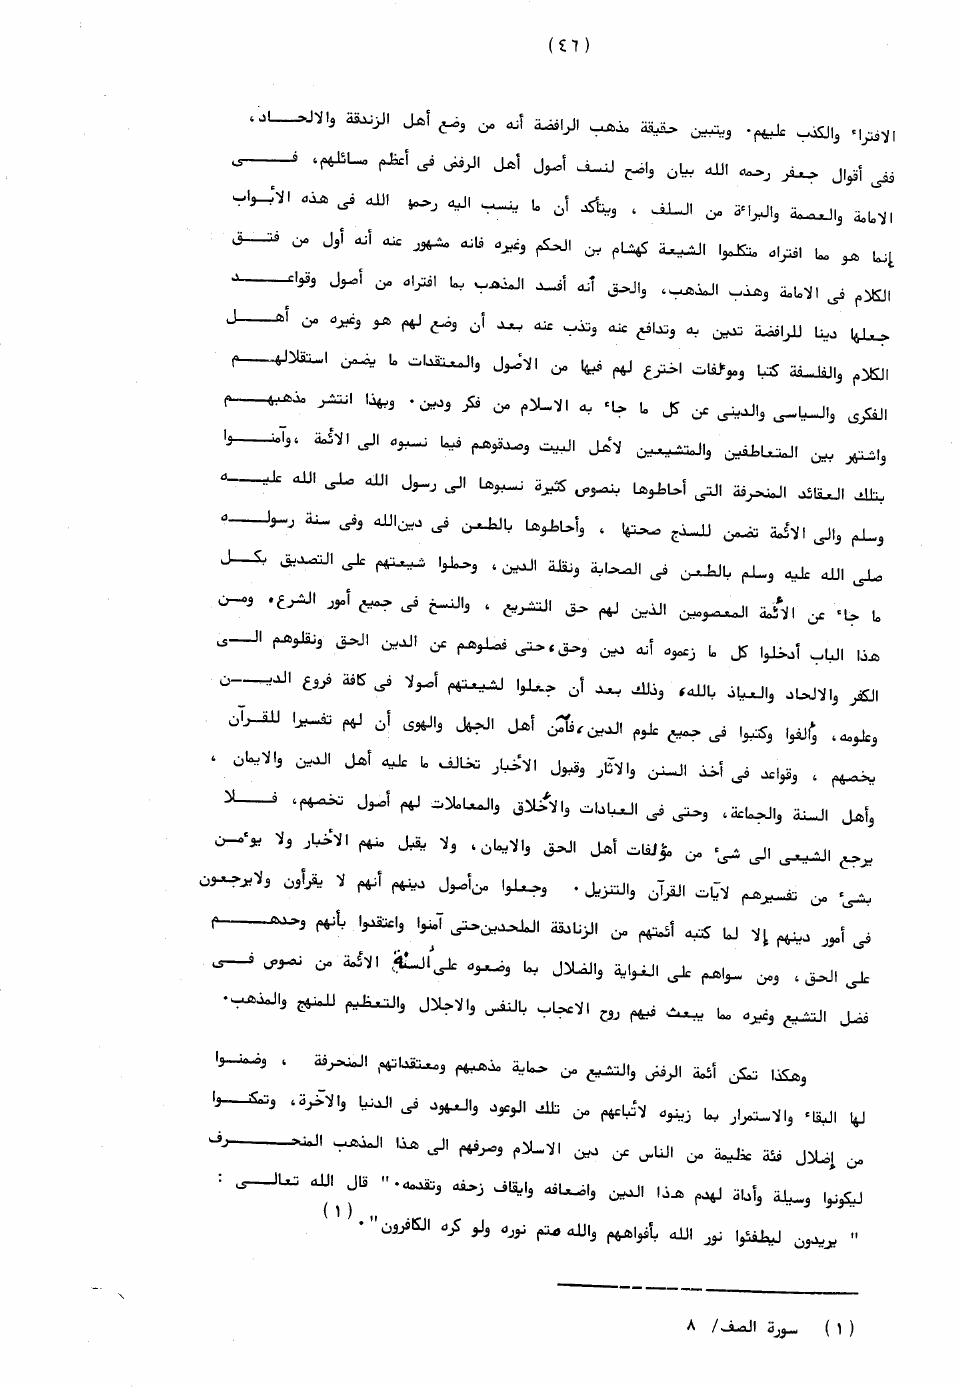 (٤٦)
الافتراء والكذب عليهم. ويتبين حقيقة مذهب الرافضة أنه من وضع أهل الزندقة والالحاد،
ففى أقوال جعفر رحمه الله بيان واضح لنسف أصول أهل الرفض فى أعظم مسائلهم، فى
الامامة والعصمة والبراءة من السلف ، ويتأكد أن ما ينسب اليه رحمه الله فى هذه الأبواب
إنما هو مما افتراه متكلموا الشيعة كهشام بن الحكم وغيره فانه مشهور عنه أنه أول من فتق
الكلام فى الامامة وهذب المذهب، والحق أنه أفسد المذهب بما افتراه من أصول وقواعد
جعلها دينا للرافضة تدين به وتدافع عنه وتذب عنه بعد أن وضع لهم هو وغيره من أهل
الكلام والفلسفة كتبا ومؤلفات اخترع لهم فيها من الأصول والمعتقدات ما يضمن استقلالهم
الفكرى والسياسى والدينى عن كل ما جاء به الاسلام من فكر ودين. وبهذا انتشر مذهبهم
واشتهر بين المتعاطفين والمتشيعين لأهل البيت وصدقوهم فيما نسبوه الى الأئمة ،وآمنوا
بتلك العقائد المنحرفة التى أحاطوها بنصوص كثيرة نسبوها الى رسول الله صلى الله عليه
وسلم والى الأئمة تضمن للسذج صحتها ، وأحاطوها بالطعن فى دين الله وفى سنة رسوله
صلى الله عليه وسلم بالطعن فى الصحابة ونقلة الدين، وحملوا شيعتهم على التصديق بكل
ما جاء عن الأئمة المعصومين الذين لهم حق التشريع ، والنسخ فى جميع أمور الشرع. ومن
هذا الباب أدخلوا كل ما زعموه أنه دين وحق،حتى فصلوهم عن الدين الحق ونقلوهم الى
الكفر والالحاد والعياذ بالله، وذلك بعد أن جعلوا لشيعتهم أصولا فى كافة فروع الدين
وعلومه، وألفوا وكتبوا فى جميع علوم الدين،فآمن أهل الجهل والهوى أن لهم تفسيرا للقرآن
يخصهم ، وقواعد فى أخذ السنن والآثار وقبول الأخبار تخالف ما عليه أهل الدين والايمان ،
وأهل السنة والجماعة، وحتى فى العبادات والأخلاق والمعاملات لهم أصول تخصهم، فلا
يرجع الشيعى الى شىء من مؤلفات أهل الحق والايمان، ولا يقبل منهم الأخبار ولا يوءمن
بشىء من تفسيرهم لآيات القرآن والتنزيل. وجعلوا من أصول دينهم أنهم لا يقرأون ولايرجعون
فى أمور دينهم إلا لما كتبه أئمتهم من الزنادقة الملحدين حتى آمنوا واعتقدوا بأنهم وحدهم
على الحق، ومن سواهم على الغواية والضلال بما وضعوه على ألسنة الأئمة من نصوص فى
فضل التشيع وغيره مما يبعث فيهم روح الاعجاب بالنفس والاجلال والتعظيم للمنهج والمذهب.
وهكذا تمكن أئمة الرفض والتشيع من حماية مذهبهم ومعتقداتهم المنحرفة ، وضمنوا
لها البقاء والاستمرار بما زينوه لأتباعهم من تلك الوعود والعهود فى الدنيا والآخرة، وتمكنوا
من إضلال فئة عظيمة من الناس عن دين الاسلام وصرفهم الى هذا المذهب المنحرف
ليكونوا وسيلة وأداة لهدم هذا الدين واضعافه وايقاف زحفه وتقدمه." قال الله تعالى :
" يريدون ليطفئوا نور الله بأفواههم والله متم نوره ولو كره الكافرون". (١)
(١) سورة الصف/ ٨